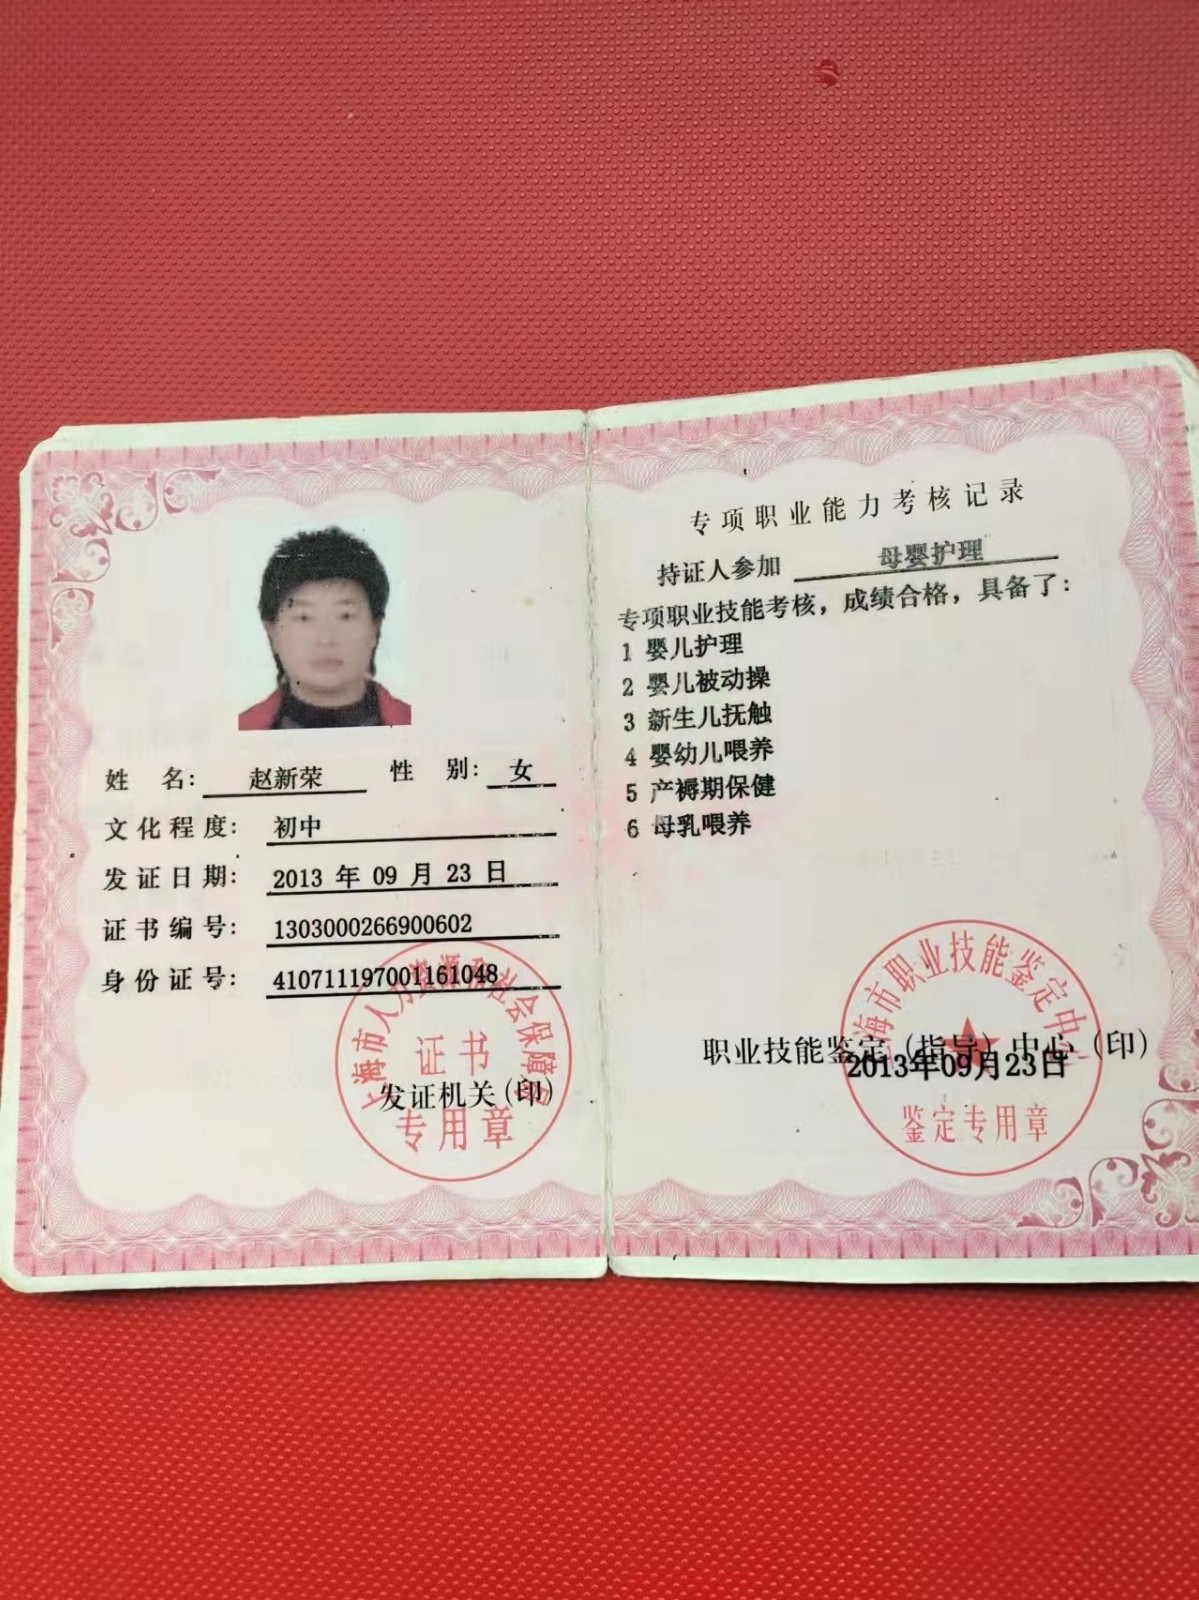 姓 名： 赵新荣 性 别： 女
文化程度： 初中
发证日期： 2013 年 09 月 23 日
证书编号： 1303000266900602
身份证号： 410711197001161048
上海市人力资源和社会保障局
证书
发证机关(印)
专用章
专项职业能力考核记录
持证人参加 母婴护理
专项职业技能考核，成绩合格，具备了：
1 婴儿护理
2 婴儿被动操
3 新生儿抚触
4 婴幼儿喂养
5 产褥期保健
6 母乳喂养
上海市职业技能鉴定中心
职业技能鉴定(指导)中心(印)
2013年09月23日
鉴定专用章